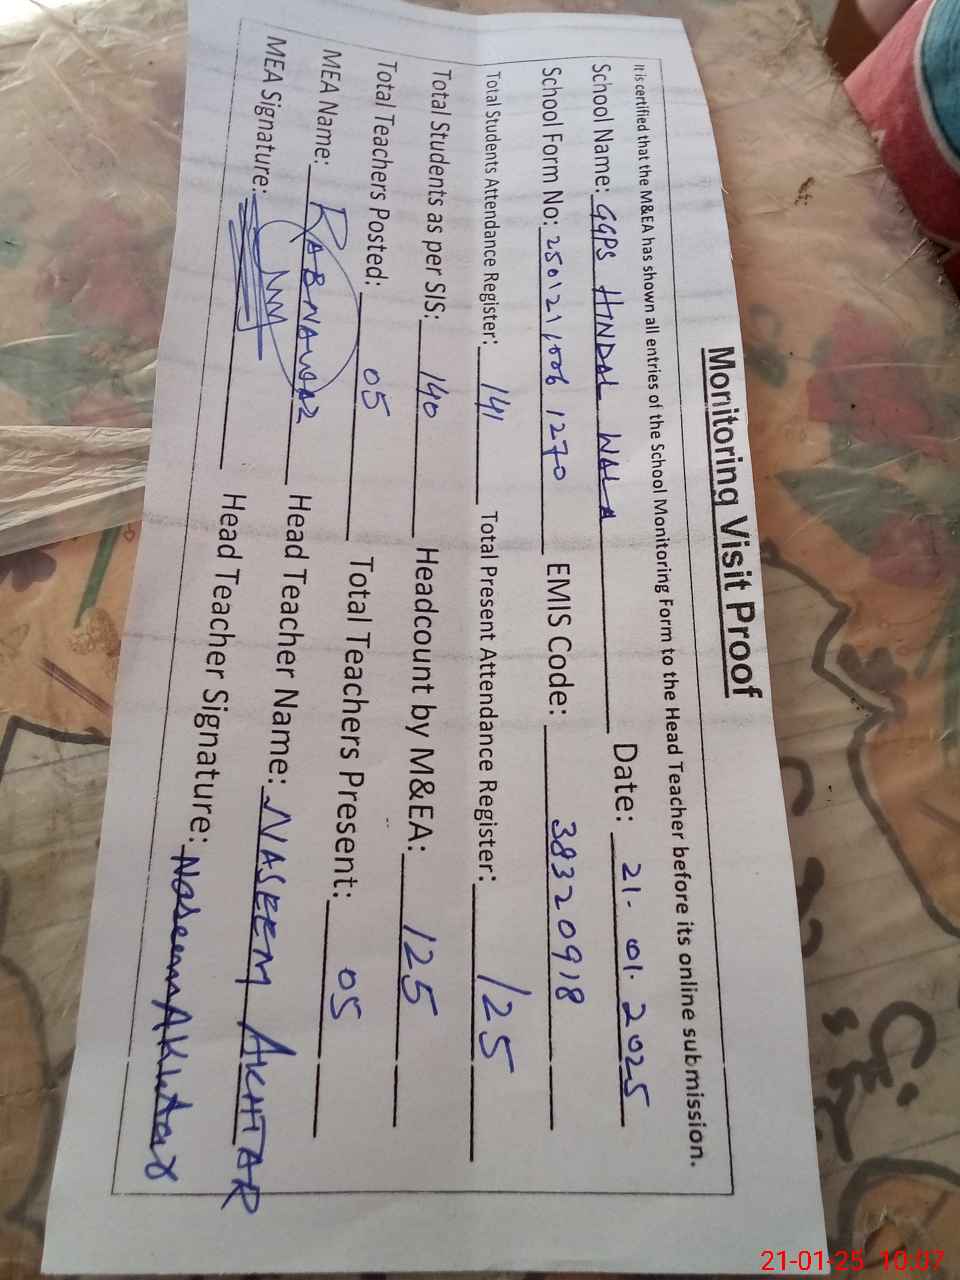 Monitoring Visit Proof
It is certified that the M&EA has shown all entries of the School Monitoring Form to the Head Teacher before its online submission.
School Name: GGPS HINDAL WALA Date: 21.01.2025
School Form No: 2501211006 1270 EMIS Code: 38320918
Total Students Attendance Register: 141 Total Present Attendance Register: 125
Total Students as per SIS: 140 Headcount by M&EA: 125
Total Teachers Posted: 05 Total Teachers Present: 05
MEA Name: RABNAWAZ Head Teacher Name: NASEEM AKHTAR
MEA Signature: Head Teacher Signature: Naseem Akhtar
21-01-25 10:07